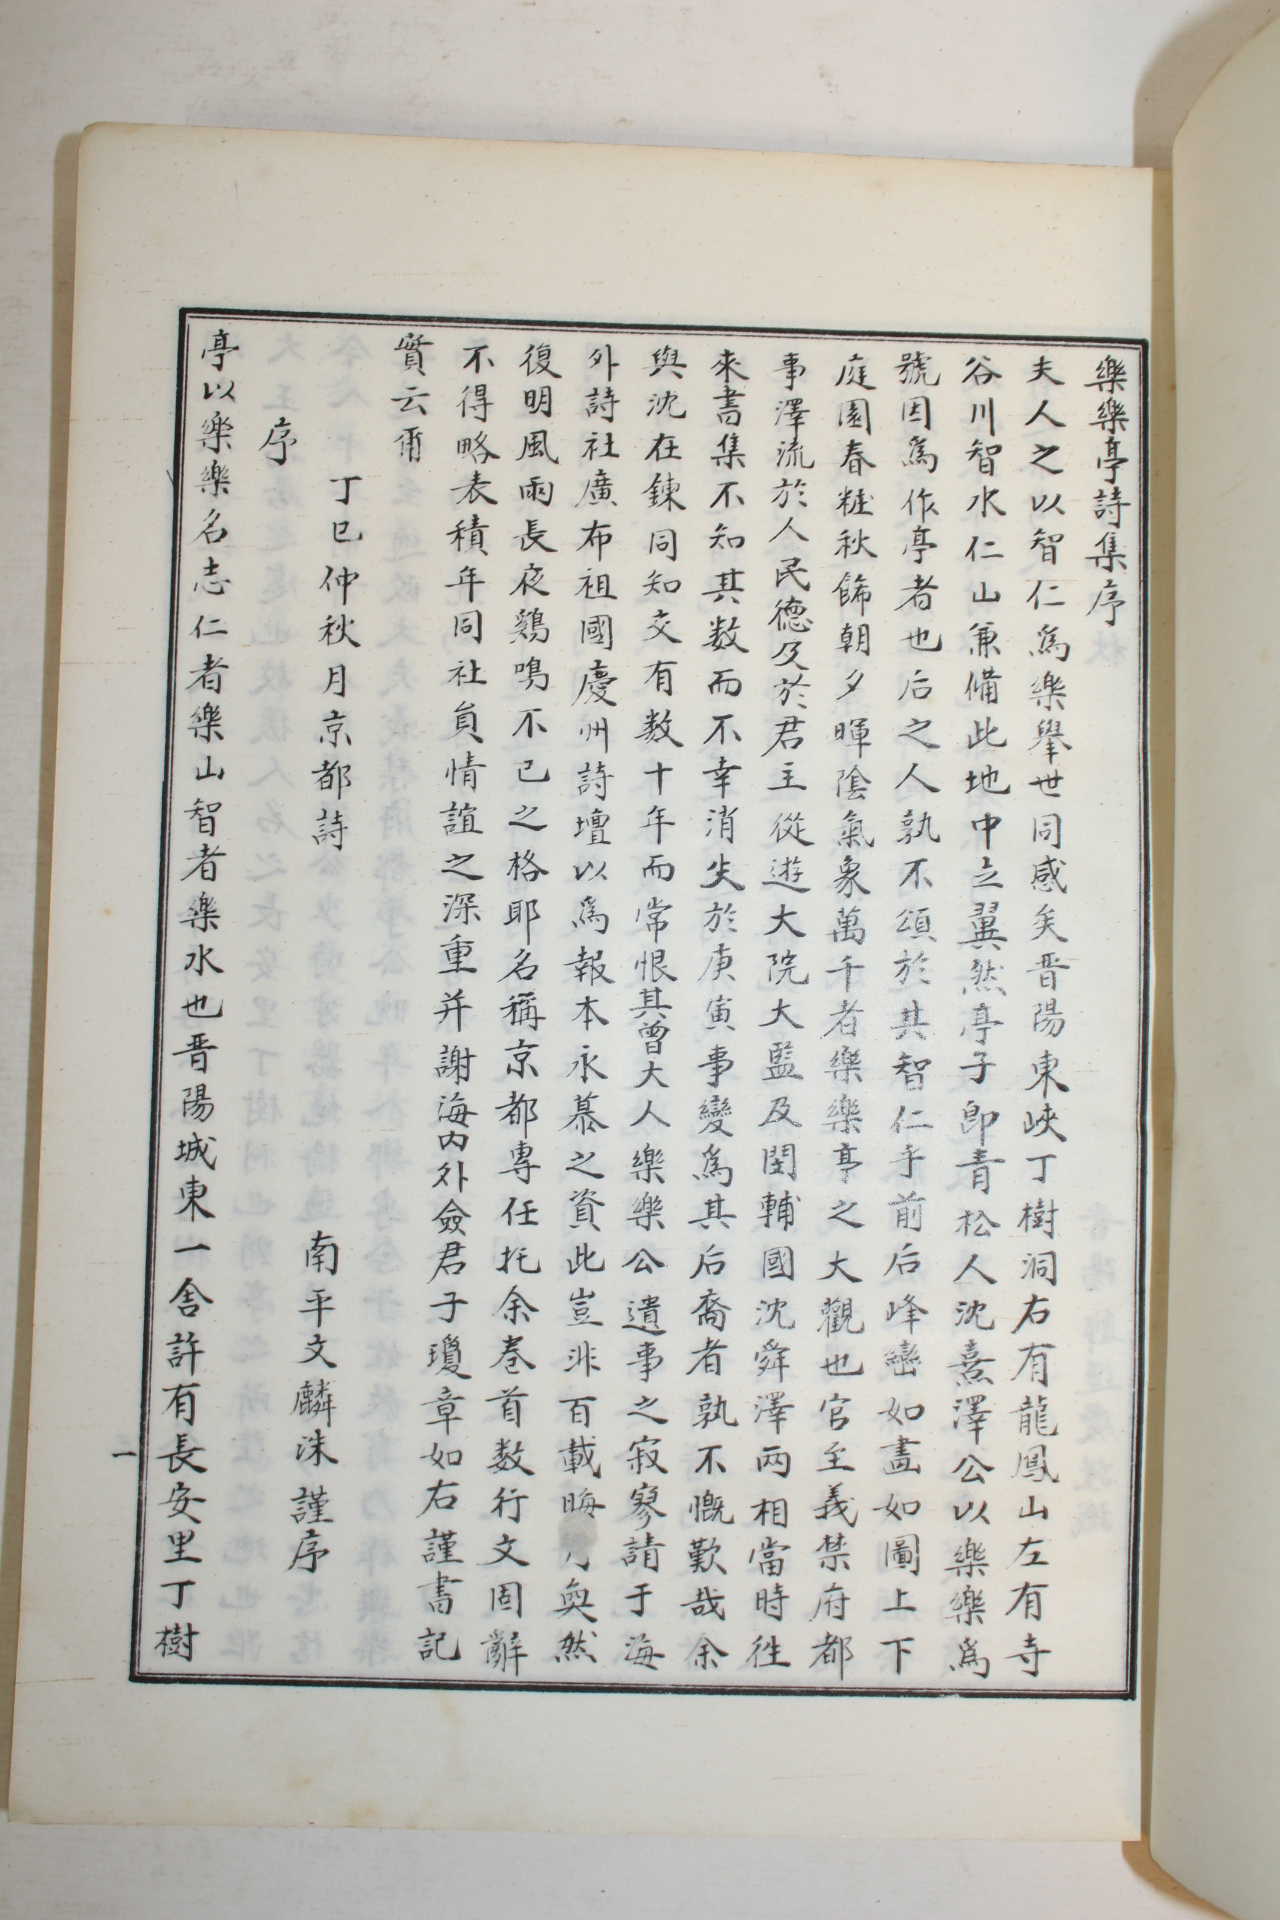 樂樂亭詩集序
夫人之以智仁爲樂擧世同感矣晋陽東峽丁樹洞右有龍鳳山左有寺
谷川智水仁山兼備此地中立翼然亭子卽青松人沈熹澤公以樂樂爲
號因爲作亭者也后之人孰不頌於其智仁乎前后峰巒如畵如圖上下
庭園春粧秋餙朝夕暉陰氣象萬千者樂樂亭之大觀也官至義禁府都
事澤流於人民德及於君主從遊大院大監及閔輔國沈舜澤兩相當時徃
來書集不知其数而不幸消失於庚寅事變爲其后裔者孰不慨歎哉余
與沈在鍊同知交有数十年而常恨其曾大人樂樂公遺事之寂寥請于海
外詩社廣布祖國慶州詩壇以爲報本永慕之資此豈非百載晦奐然
復明風雨長夜鷄鳴不已之格耶名稱京都專任托余卷首数行文固辭
不得略表積年同社員情誼之深重并謝海内外僉君子瓊章如右謹書記
實云甭
丁巳仲秋月京都詩 南平文麟洙謹序
序
亭以樂樂名志仁者樂山智者樂水也晋陽城東一舎許有長安里丁樹
一